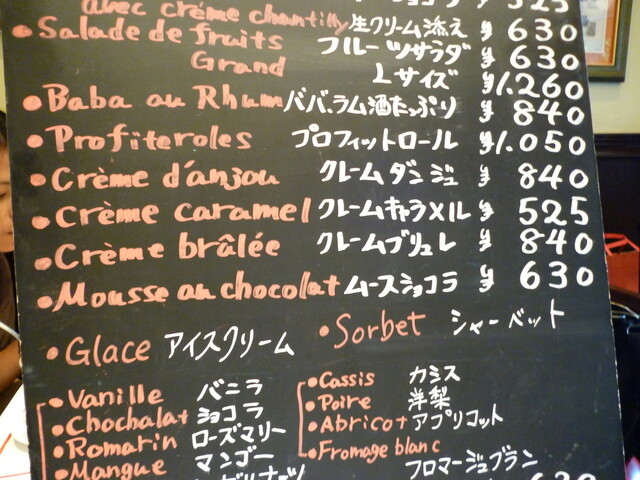 avec créme chantilly 生クリーム添え ¥ 630
Salade de fruits フルーツサラダ ¥ 630
Grand Lサイズ ¥1.260
Baba au Rhum ババ.ラム酒たっぷり ¥ 840
Profiteroles プロフィットロール ¥1.050
Crème d'anjou クレームダンジュ ¥ 840
Crème caramel クレームキャラメル ¥ 525
Crème brâlée クレームブリュレ ¥ 840
Mousse au chocolat ムースショコラ ¥ 630
Glace アイスクリーム
Sorbet シャーベット
Vanille バニラ
Chochalat ショコラ
Romarin ローズマリー
Mangue マンゴー
Cassis カシス
Poire 洋梨
Abricot アプリコット
Fromage blanc
フロマージュブラン